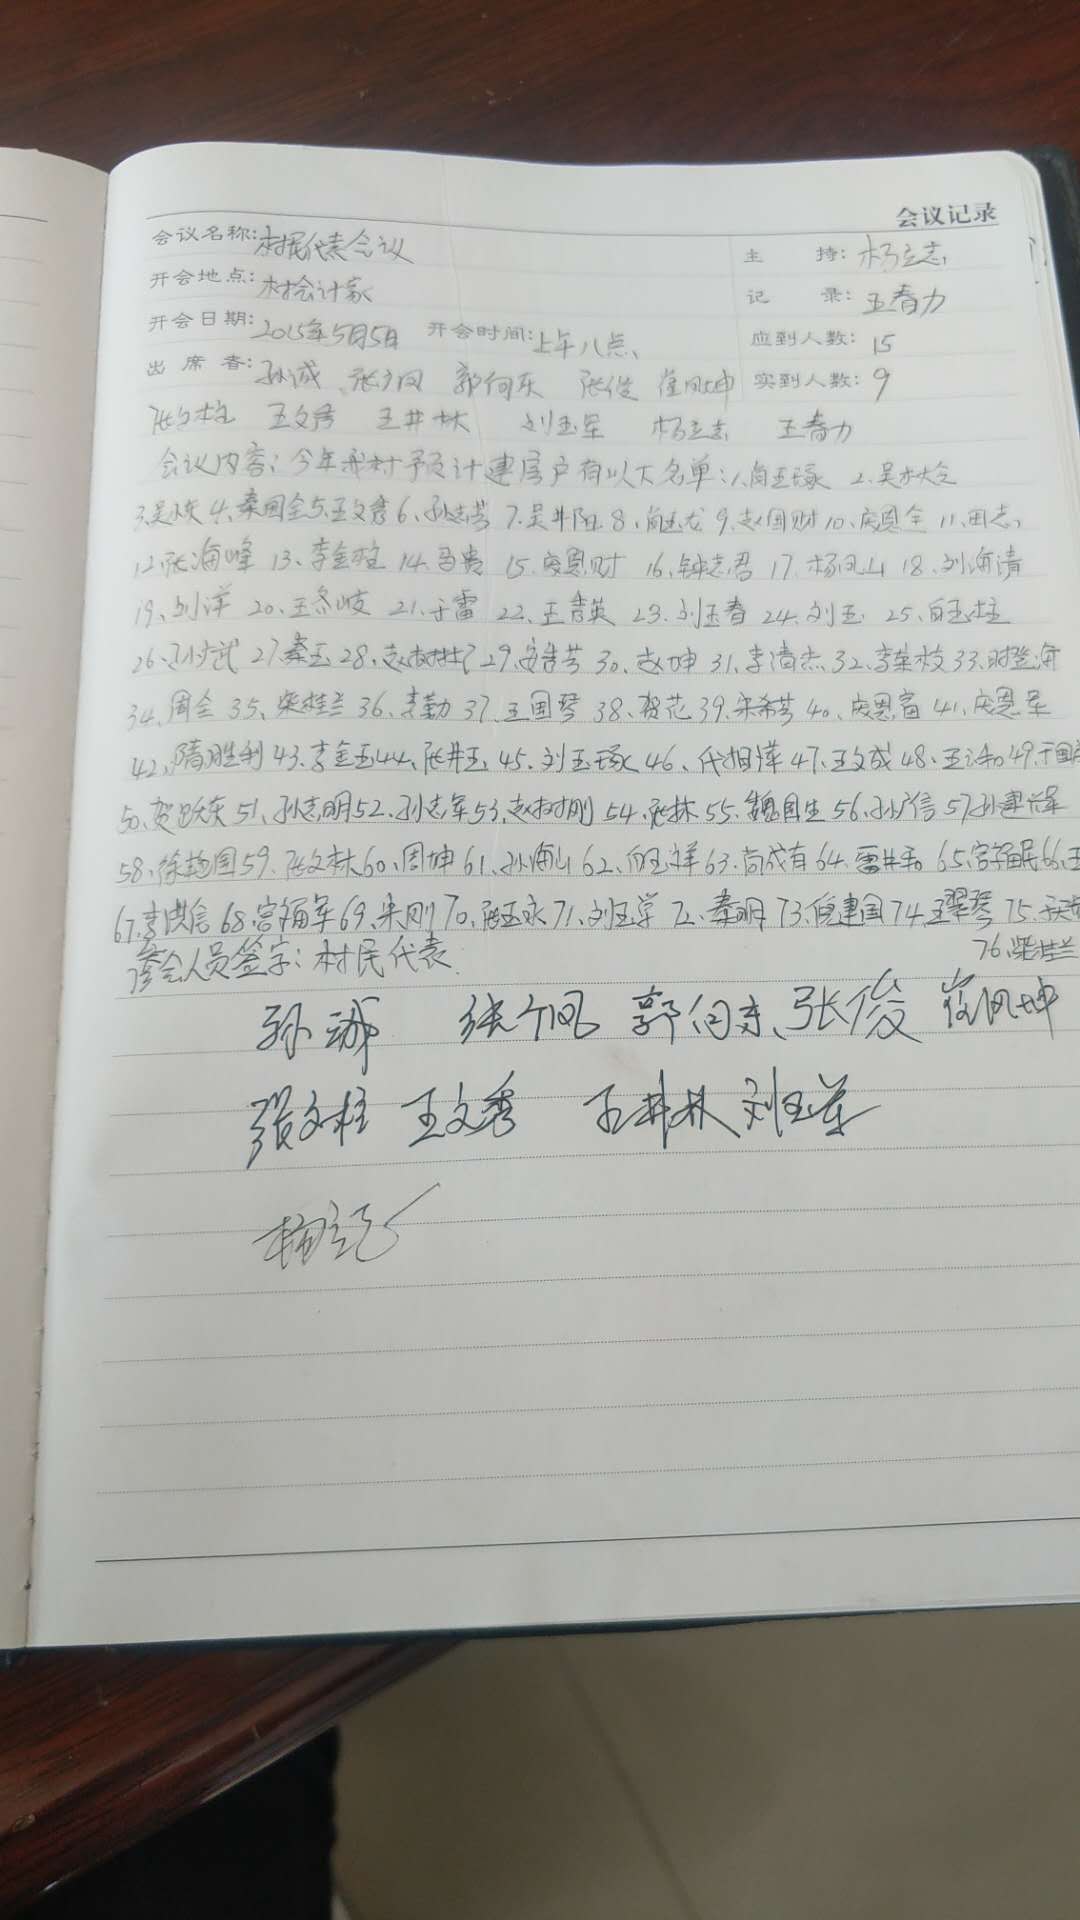 会议记录
会议名称:村民代表会议 主 持:杨立志
开会地点:村会计家 记 录:王春力
开会日期:2015年5月5日 开会时间:上午八点 应到人数:15
出 席 者:孙诚 张广凤 郭向东 张俊 崔凤坤 实到人数:9
张文柱 王文秀 王井林 刘玉军 杨立志 王春力
会议内容:今年我村予预计建房户有以下名单:1、尚玉琢 2、吴木全
4、秦国全 5、王文秀 6、孙志芳 7、吴井阳 8、尚玉龙 9、赵国财 10、庞恩全 11、田志
12、张海峰 13、李金柱 14、马贵 15、庞恩财 16、钟志君 17、杨凤山 18、刘海清
19、刘洋 20、王冬岐 21、于雷 22、王喜英 23、刘玉春 24、刘玉 25、白玉柱
26、孙武 27、秦玉 28、赵树 29、安喜芳 30、赵坤 31、李清杰 32、李荣枝 33、海
34、周全 35、柴桂兰 36、李勤 37、王国琴 38、贺花 39、宋希芳 40、庞恩富 41、庞恩军
42、隋胜利 43、李金玉 44、张井玉 45、刘玉琢 46、代相洋 47、王文成 48、王 49、于国
50、贺跃东 51、孙志明 52、孙志军 53、赵树刚 54、张林 55、魏国生 56、孙广信 57、孙建军
58、徐艳国 59、张文林 60、周坤 61、孙海山 62、白玉祥 63、尚成有 64、雷井和 65、宫福民 66、王
67、李洪信 68、宫福军 69、宋刚 70、张玉永 71、刘玉学 72、秦明 73、倪建国 74、王翠琴 75、于天
76、柴桂兰
参会人员签字:村民代表
孙诚 张广凤 郭向东 张俊 崔凤坤
張文柱 王文秀 王井林 刘玉军
杨立志